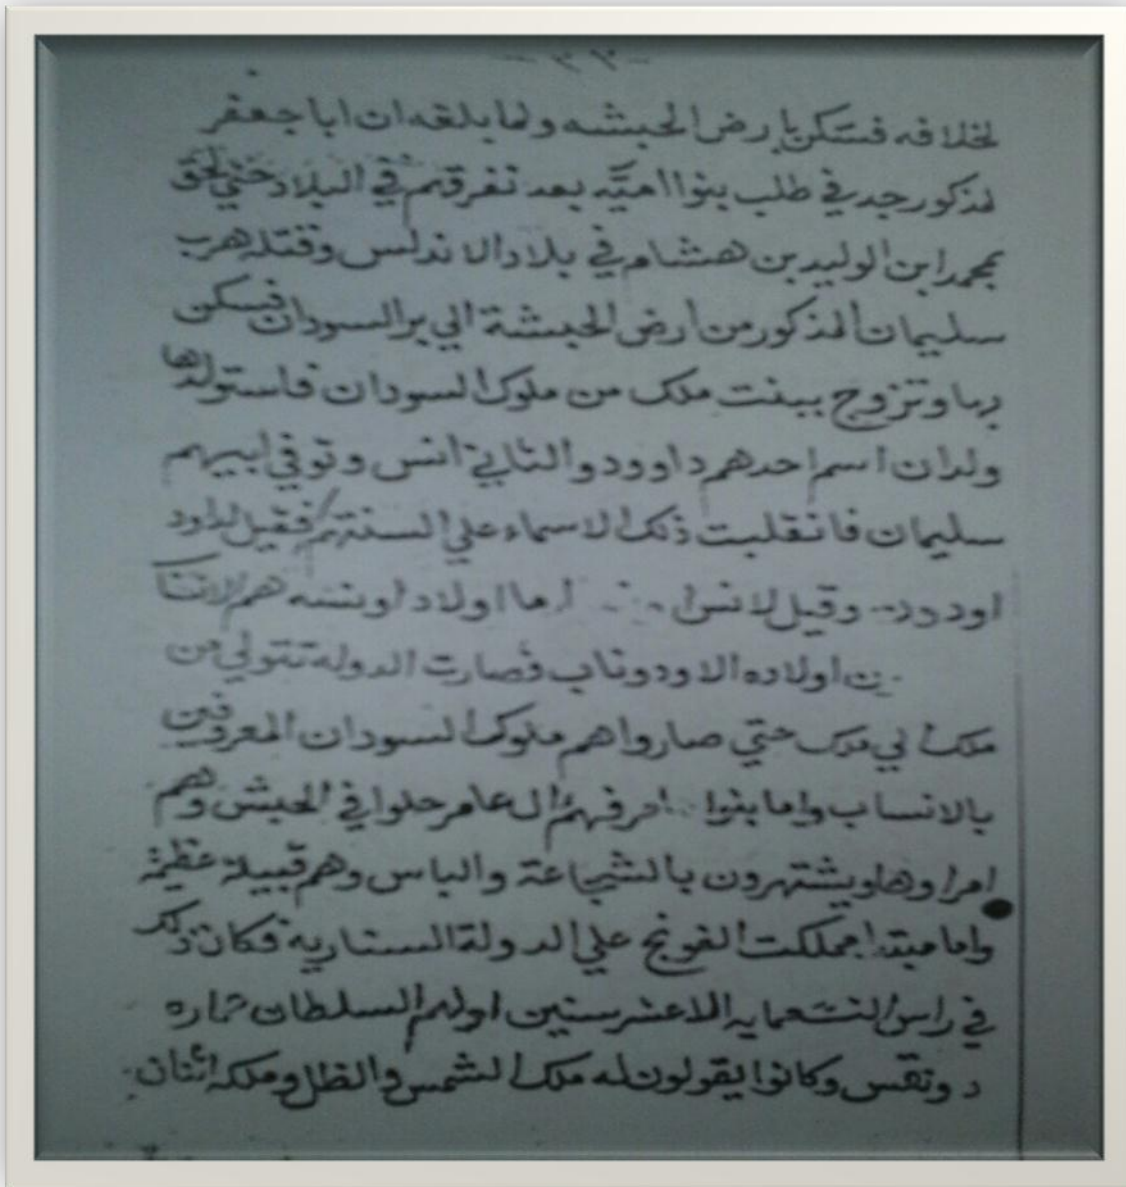 -٣٣-
لخلافه فستكن بارض الحبشه ولما بلغه ان ابا جعفر
لمذكور جد في طلب بنوا اميَّه بعد تفرقهم في البلاد حتي لحق
بمحمد ابن الوليد بن هشام في بلاد الاندلس وقتله هرب
سليمان المذكور من أرض الحبشة الي بر السودان فسكن
بها وتزوج ببنت ملك من ملوك السودان فاستولدها
ولدان اسم احدهم داوود والثاني انس وتوفي ابيهم
سليمان فانقلبت ذلك الاسماء علي السنتهم فقيل لداود
اودود وقيل لانس اما اولاد اونسه هم
اولاده الاودوناب فصارت الدوله تتولي من
ملك الي ملك حتي صاروا هم ملوك السودان المعروفين
بالانساب واما بنوا فهم ال عامر حلوا في الحبش وهم
امراوها ويشتهرون بالشجاعة والباس وهم قبيلة عظيمة
واما مبتدا مملكت الفونج علي الدولة السنارية فكان ذلك
في راس التسعمايه الا عشر سنين اولهم السلطان عماره
دونقس وكانوا يقولون له ملك الشمس والظل وملكه اثنان